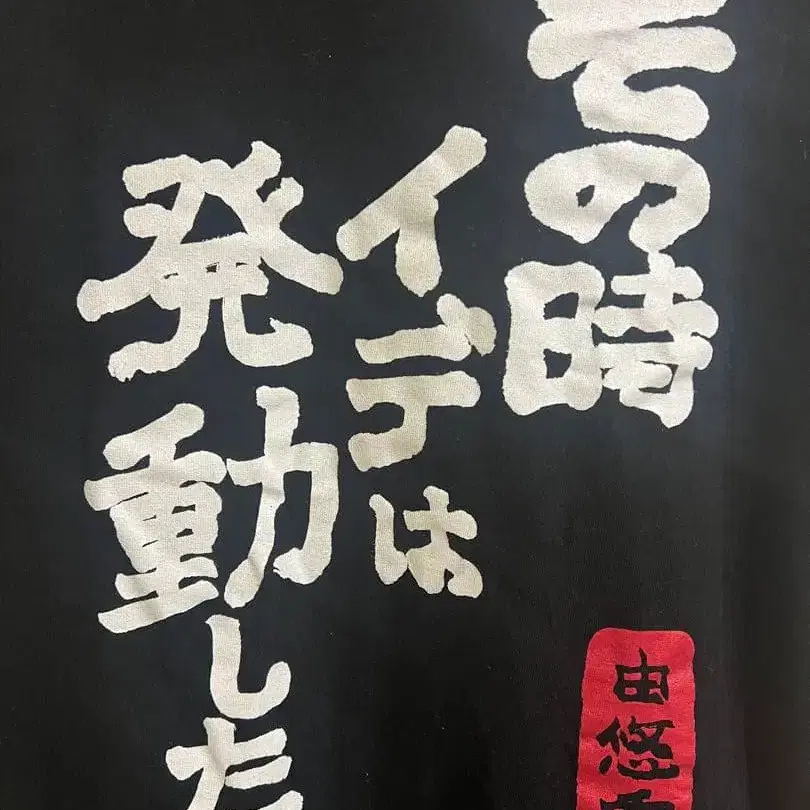 その時
イデは
発動した
由悠